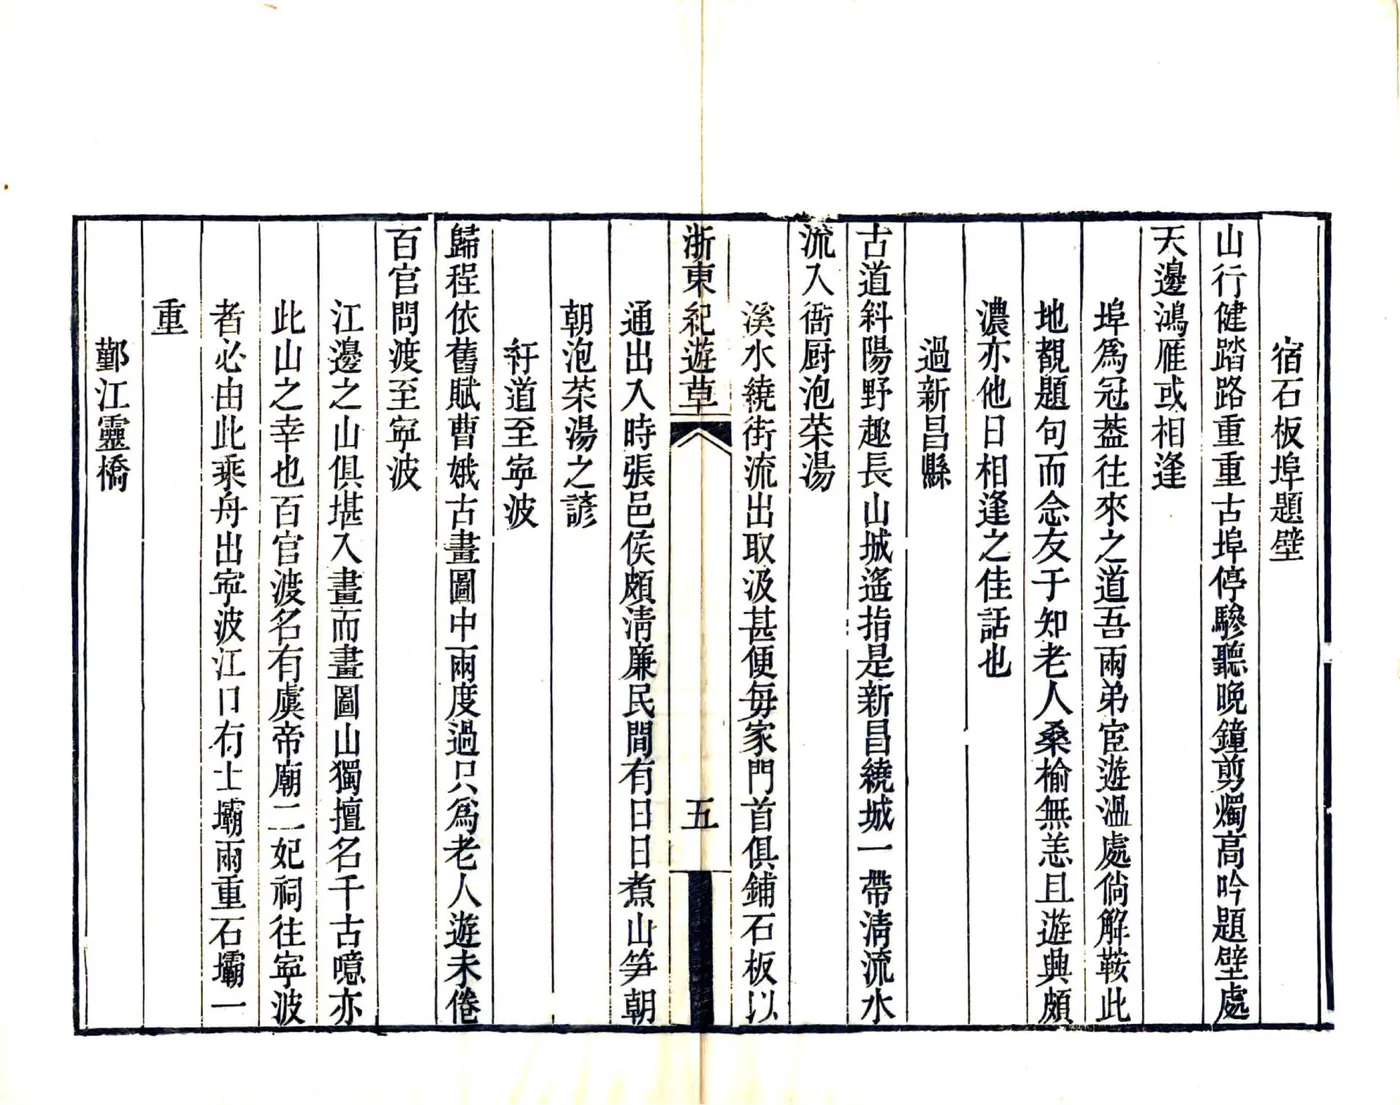 宿石板埠題壁
山行健踏路重重古埠停驂聽晚鐘剪燭高吟題壁處
天邊鴻雁或相逢
埠爲冠葢往來之道吾兩弟宦遊溫處倘解鞍此
地覩題句而念友于知老人桑榆無恙且遊興頗
濃亦他日相逢之佳話也
過新昌縣
古道斜陽野趣長山城遙指是新昌繞城一帶清流水
流入衙厨泡茶湯
溪水繞街流出取汲甚便每家門首俱鋪石板以
浙東紀遊草
五
通出入時張邑侯頗清廉民間有日日煮山笋朝
朝泡茶湯之諺
紆道至寧波
歸程依舊賦曹娥古畫圖中兩度過只爲老人遊未倦
百官問渡至寧波
江邊之山俱堪入畫而畫圖山獨擅名千古噫亦
此山之幸也百官渡名有虞帝廟二妃祠往寧波
者必由此乘舟出寧波江口有土壩兩重石壩一
重
鄞江靈橋